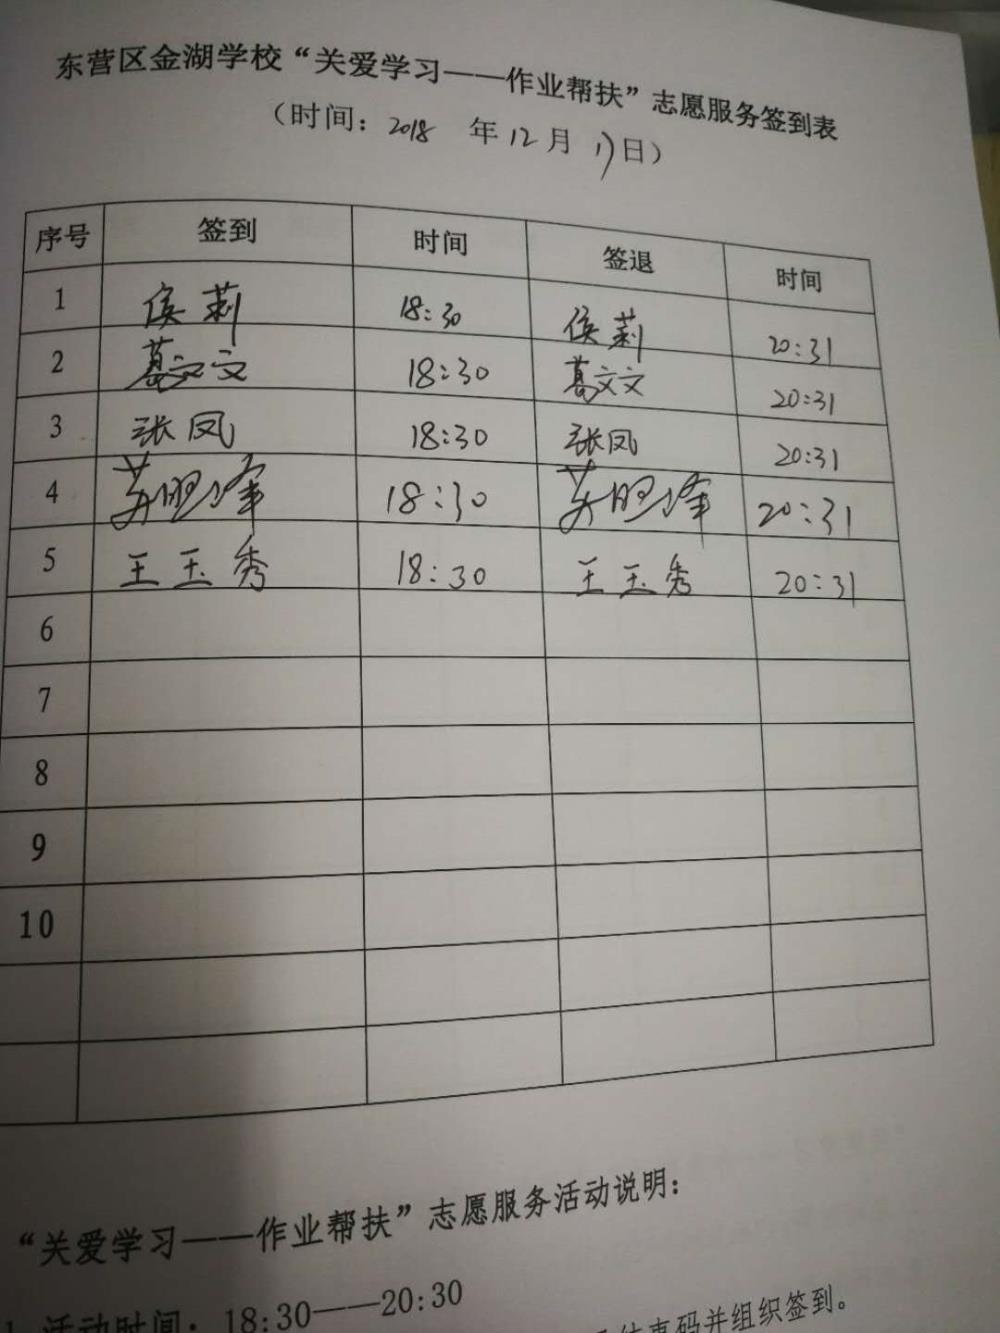 东营区金湖学校“关爱学习——作业帮扶”志愿服务签到表
(时间: 2018 年 12 月 17 日)
序号 签到 时间 签退 时间
1 侯莉 18:30 侯莉 20:31
2 葛文文 18:30 葛文文 20:31
3 张凤 18:30 张凤 20:31
4 苏 18:30 苏 20:31
5 王玉秀 18:30 王玉秀 20:31
6
7
8
9
10
“关爱学习——作业帮扶”志愿服务活动说明:
1 活动时间: 18:30——20:30
结束码并组织签到。